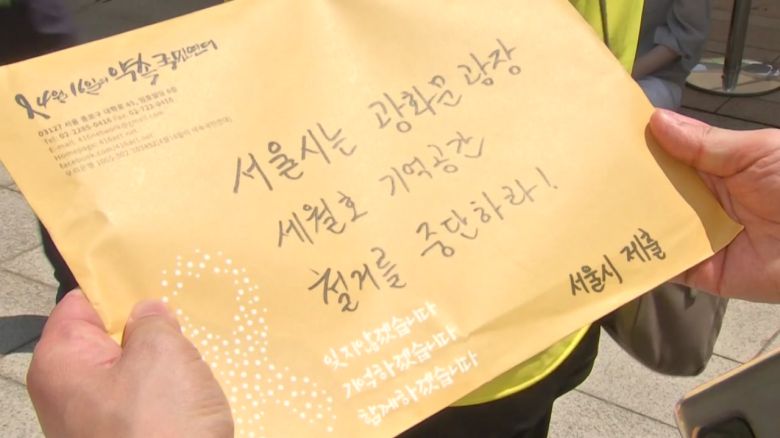 4월 16일의 약속 국민연대
03127 서울 종로구 대학로 45, 임호빌딩 6층
Tel. 02-2285-0416 Fax. 02-722-0416
E-mail: 416network@gmail.com
Homepage: 416act.net
facebook.com/416act.net
서울시는 광화문 광장
세월호 기억공간
철거를 중단하라!
서울시 제출
잊지않겠습니다
기억하겠습니다
함께하겠습니다